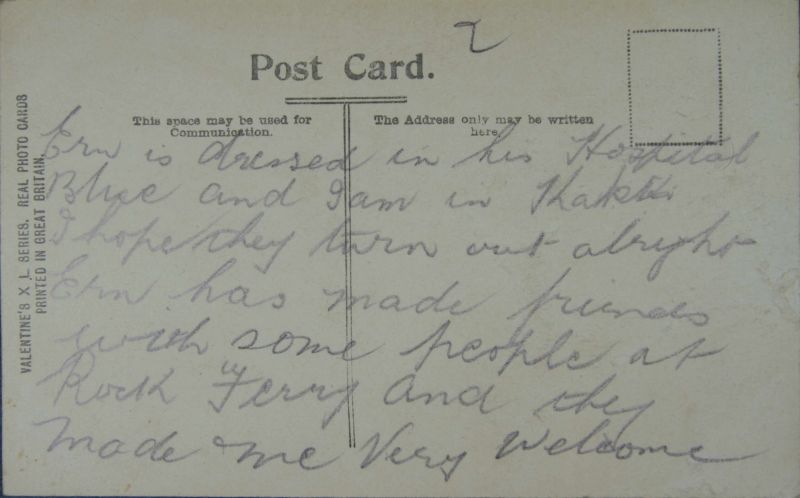 2
Post Card.
This space may be used for
Communication.
The Address only may be written
here.
VALENTINE'S X L SERIES. REAL PHOTO CARDS
PRINTED IN GREAT BRITAIN.
Ern is dressed in his Hospital
Blue and I am in Khaki
I hope they turn out alright
Ern has made friends
with some people at
Rock Ferry and they
made me Very Welcome